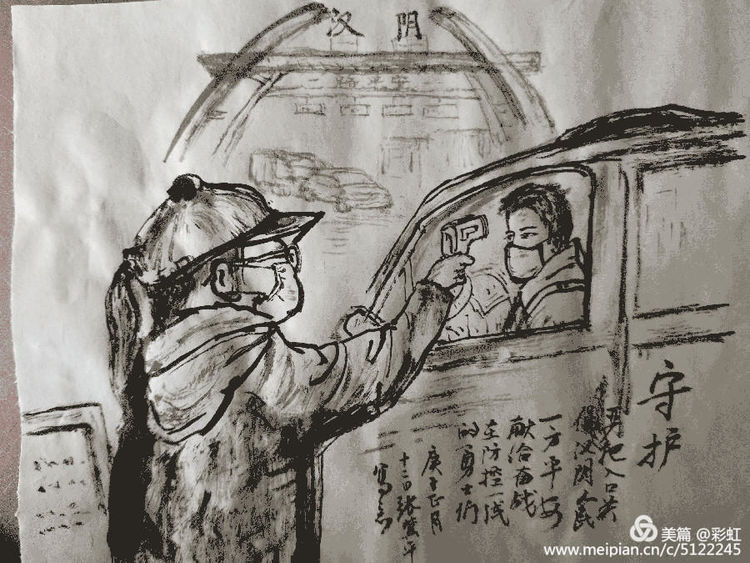 汉阴
守护
保汉阴人民
一方平安
献给奋战
在防控一线
的勇士们
庚子正月
十二日张
写
美篇 @彩虹
www.meipian.cn/c/5122245